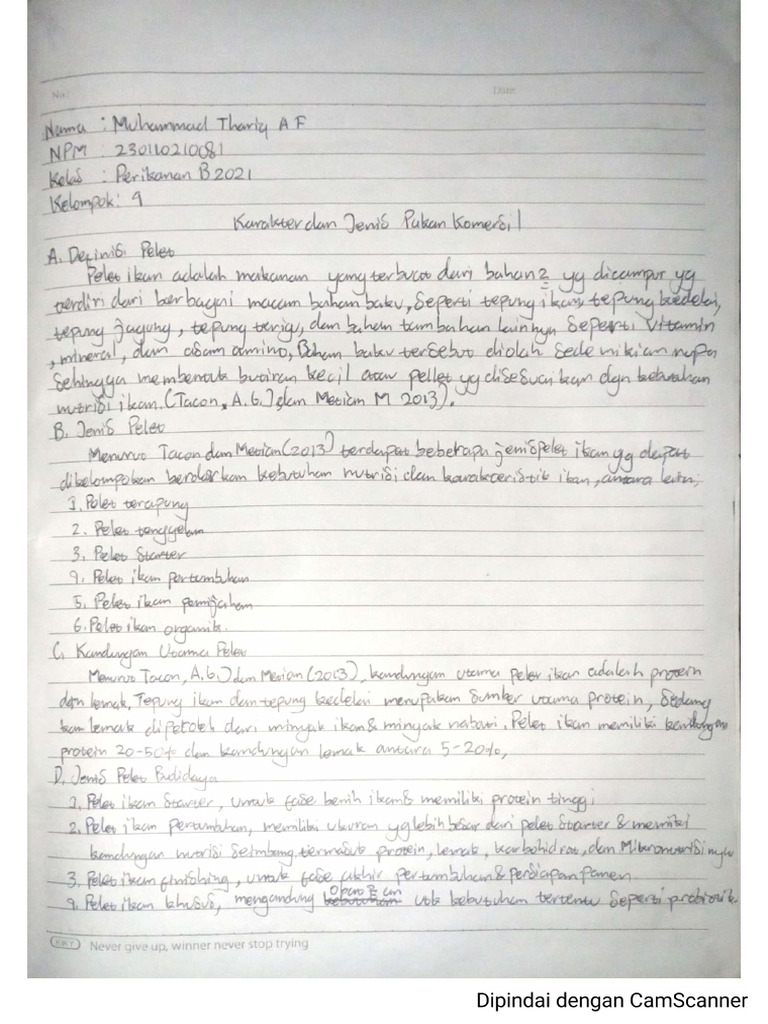 No.
Date
Nama : Muhammad Thariq A F
NPM : 230110210081
Kelas : Perikanan B 2021
Kelompok : 9
Karakter dan Jenis Pakan Komersil
A. Definisi Pelet
Pelet ikan adalah makanan yang terbuat dari bahan2 yg dicampur yg
terdiri dari berbagai macam bahan baku, seperti tepung ikan, tepung kedelai,
tepung jagung, tepung terigu, dan bahan tambahan lainnya seperti vitamin
, mineral, dan asam amino, Bahan baku tersebut diolah sedemikian rupa
sehingga membentuk butiran kecil atau pellet yg disesuaikan dgn kebutuhan
nutrisi ikan. (Tacon, A. G. J dan Metian M 2013).
B. Jenis Pelet
Menurut Tacon dan Metian (2013) terdapat beberapa jenis pelet ikan yg dapat
dikelompokan berdarkan kebutuhan nutrisi dan karakteristik ikan, antara lain;
1. Pelet terapung
2. Pelet tenggelam
3. Pelet Starter
4. Pelet ikan pertumbuhan
5. Pelet ikan pemijahan
6. Pelet ikan organik.
C. Kandungan Utama Pelet
Menurut Tacon, A. G. J dan Metian (2013), kandungan utama pelet ikan adalah protein
dan lemak, Tepung ikan dan tepung kedelai merupakan sumber utama protein, sedang
kan lemak diperoleh dari minyak ikan & minyak nabati. Pelet ikan memiliki kandungan
protein 20-50% dan kandungan lemak antara 5-20%,
D. Jenis Pelet Budidaya
1. Pelet ikan Starter, untuk fase benih ikan & memiliki protein tinggi
2. Pelet ikan Pertumbuhan, memiliki ukuran yg lebih besar dari pelet Starter & memiliki
kandungan nutrisi seimbang, termasuk protein, lemak, karbohidrat, dan Mikronutrisi nya
3. Pelet ikan finishing, untuk fase akhir pertumbuhan & persiapan panen.
4. Pelet ikan khusus, mengandung utk kebutuhan tertentu seperti probiotik
KKY Never give up, winner never stop trying
Dipindai dengan CamScanner